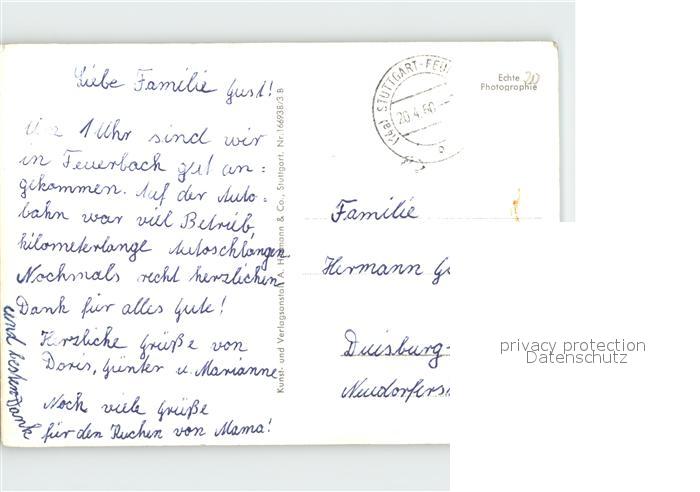 Liebe Familie Gust!
Um 1 Uhr sind wir
in Feuerbach gut an=
gekommen. Auf der Auto=
bahn war viel Betrieb,
kilometerlange Autoschlangen.
Nochmals recht herzlichen
Dank für alles Gute!
Herzliche Grüße von
Doris, Günter u. Marianne
Noch viele Grüße
für den Kuchen von Mama!
und besten Dank
Kunst- und Verlagsanstalt A. & Co., Stuttgart. Nr. 166938/3 B
(14a) STUTTGART-FEU
20.4.60.
Echte
Photographie
20
Familie
Hermann Gu
Duisburg-
Neudorfers
privacy protection
Datenschutz